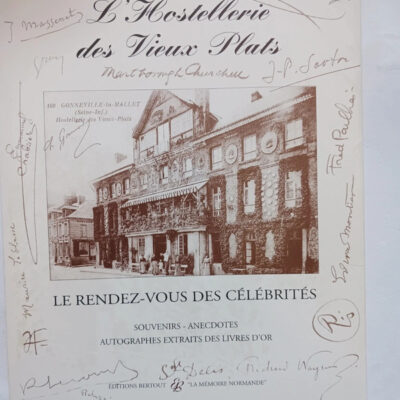 L'Hostellerie
des Vieux Plats
J. Massenet
Marlborough Churchill
J-P. Sartre
160 GONNEVILLE-la-MALLET
(Seine-Inf.)
Hostellerie des Vieux-Plats
Emmanuel Chabrier
Fred Pailhès
Maurice Leblanc
LE RENDEZ-VOUS DES CÉLÉBRITÉS
SOUVENIRS - ANECDOTES
AUTOGRAPHES EXTRAITS DES LIVRES D'OR
Richard Wagner
EDITIONS BERTOUT "LA MÉMOIRE NORMANDE"